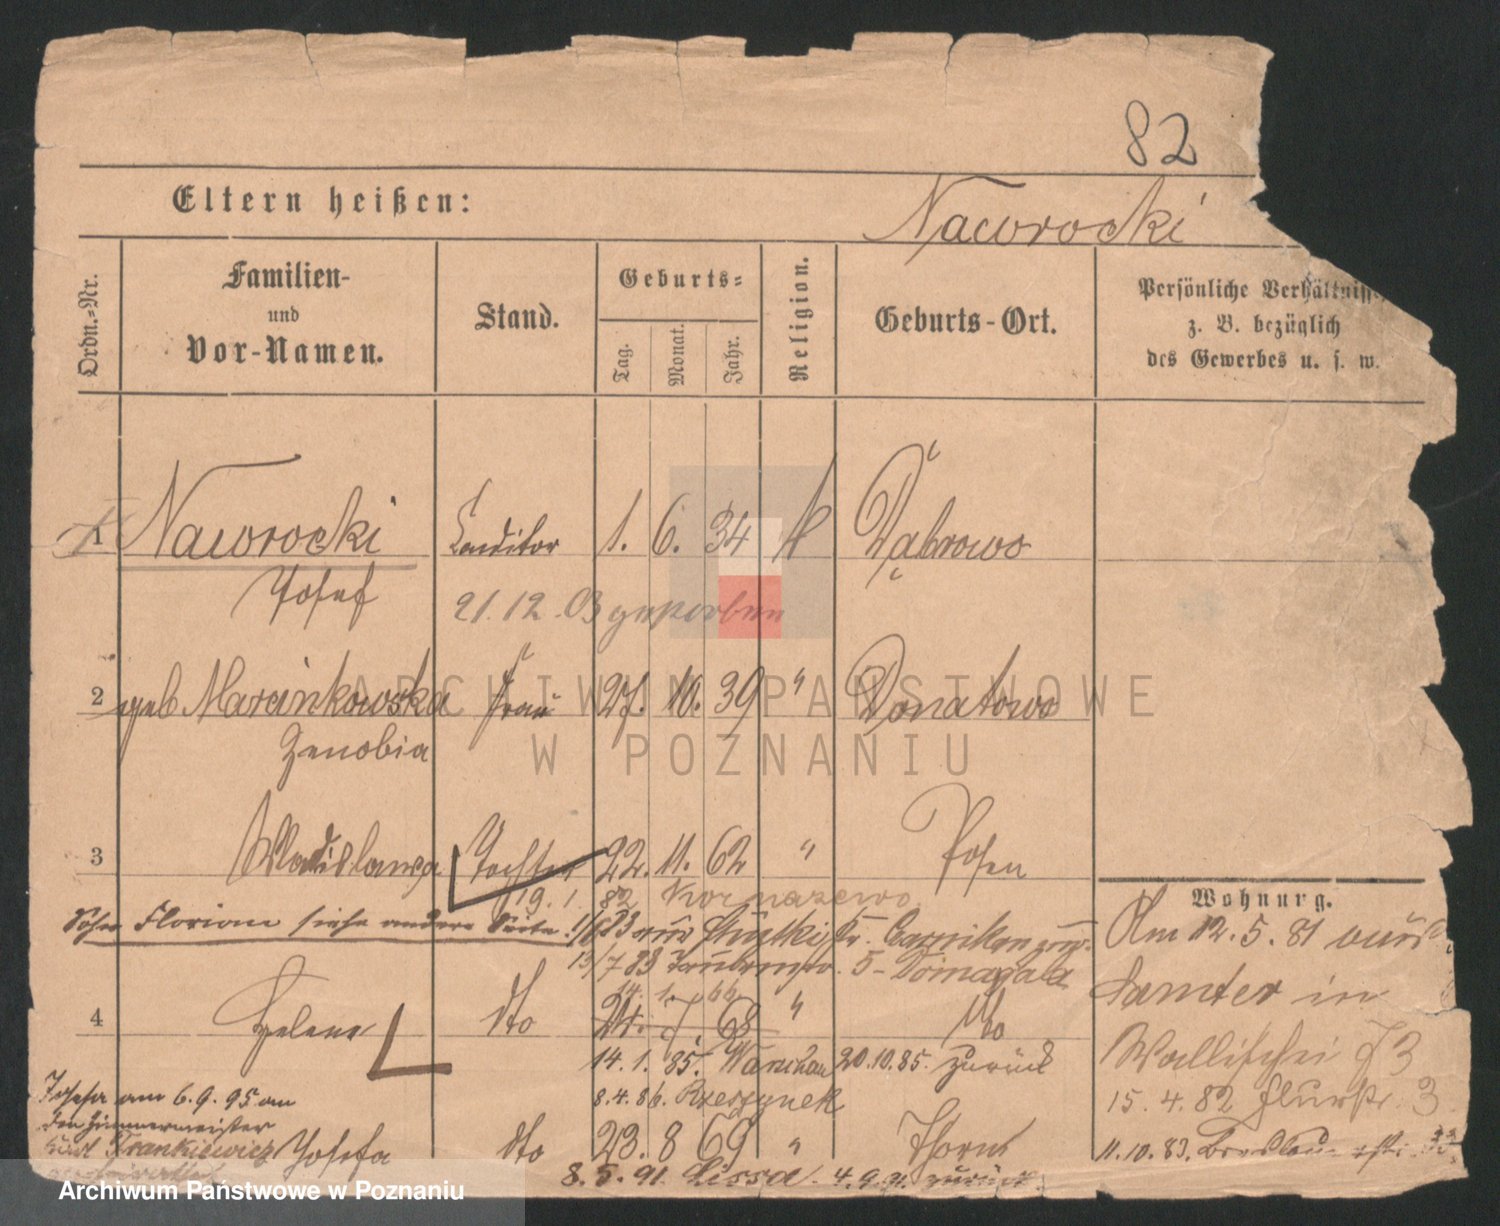 82
Eltern heißen:
Nawrocki
Ordn.-Nr.
Familien- und Vor-Namen.
Stand.
Geburts-
Tag.
Monat.
Jahr.
Religion.
Geburts-Ort.
Persönliche Verhältniss
z. B. bezüglich
des Gewerbes u. s. w.
1 Nawrocki Conditor 1. 6. 34 k Dąbrowo
Josef
21.12.03 gestorben
2 geb Marcinkowska Frau 27. 10. 39 " Donatowo
Zenobia
3 Wladislawa Tochter 22. 11. 62 " Posen
19. 1. 82 Kornazewo
Wohnung.
Sohn Florian siehe andere Seite. 83 aus Czarnikau
Am 12. 5. 81 aus
13/7 83 5 Domagala
Samter in
14. 1. 66
4 Helene dto 24. 7. 68 " dto
Wallischei 73
14. 1. 85. Warschau 20.10.85. zurück
15. 4. 82 Flurstr. 3
8.4.86. Rzeszynek
Josefa am 6.9.95 an
den Zimmermeister
Frankiewicz Josefa dto 23. 8 69 " Thorn
11.10.83. Breslau
8. 5. 91 Lissa. 4.9.91. zurück.
ARCHIWUM PAŃSTWOWE
W POZNANIU
Archiwum Państwowe w Poznaniu